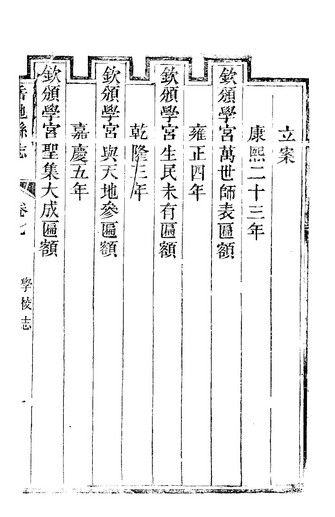 立案
康熙二十三年
欽頒學宮萬世師表匾額
雍正四年
欽頒學宮生民未有匾額
乾隆三年
欽頒學宮與天地參匾額
嘉慶五年
欽頒學宮聖集大成匾額
岳池縣志
卷七
學校志